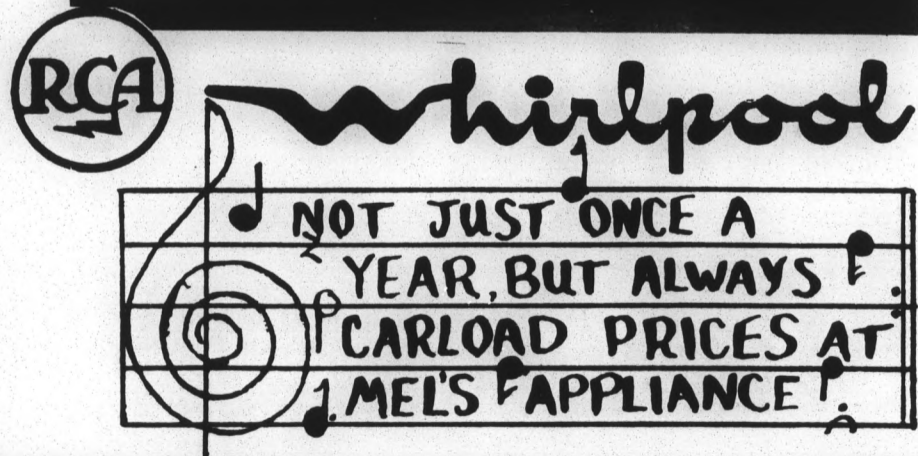 RCA
Whirlpool
NOT JUST ONCE A
YEAR, BUT ALWAYS
CARLOAD PRICES AT
MEL'S APPLIANCE